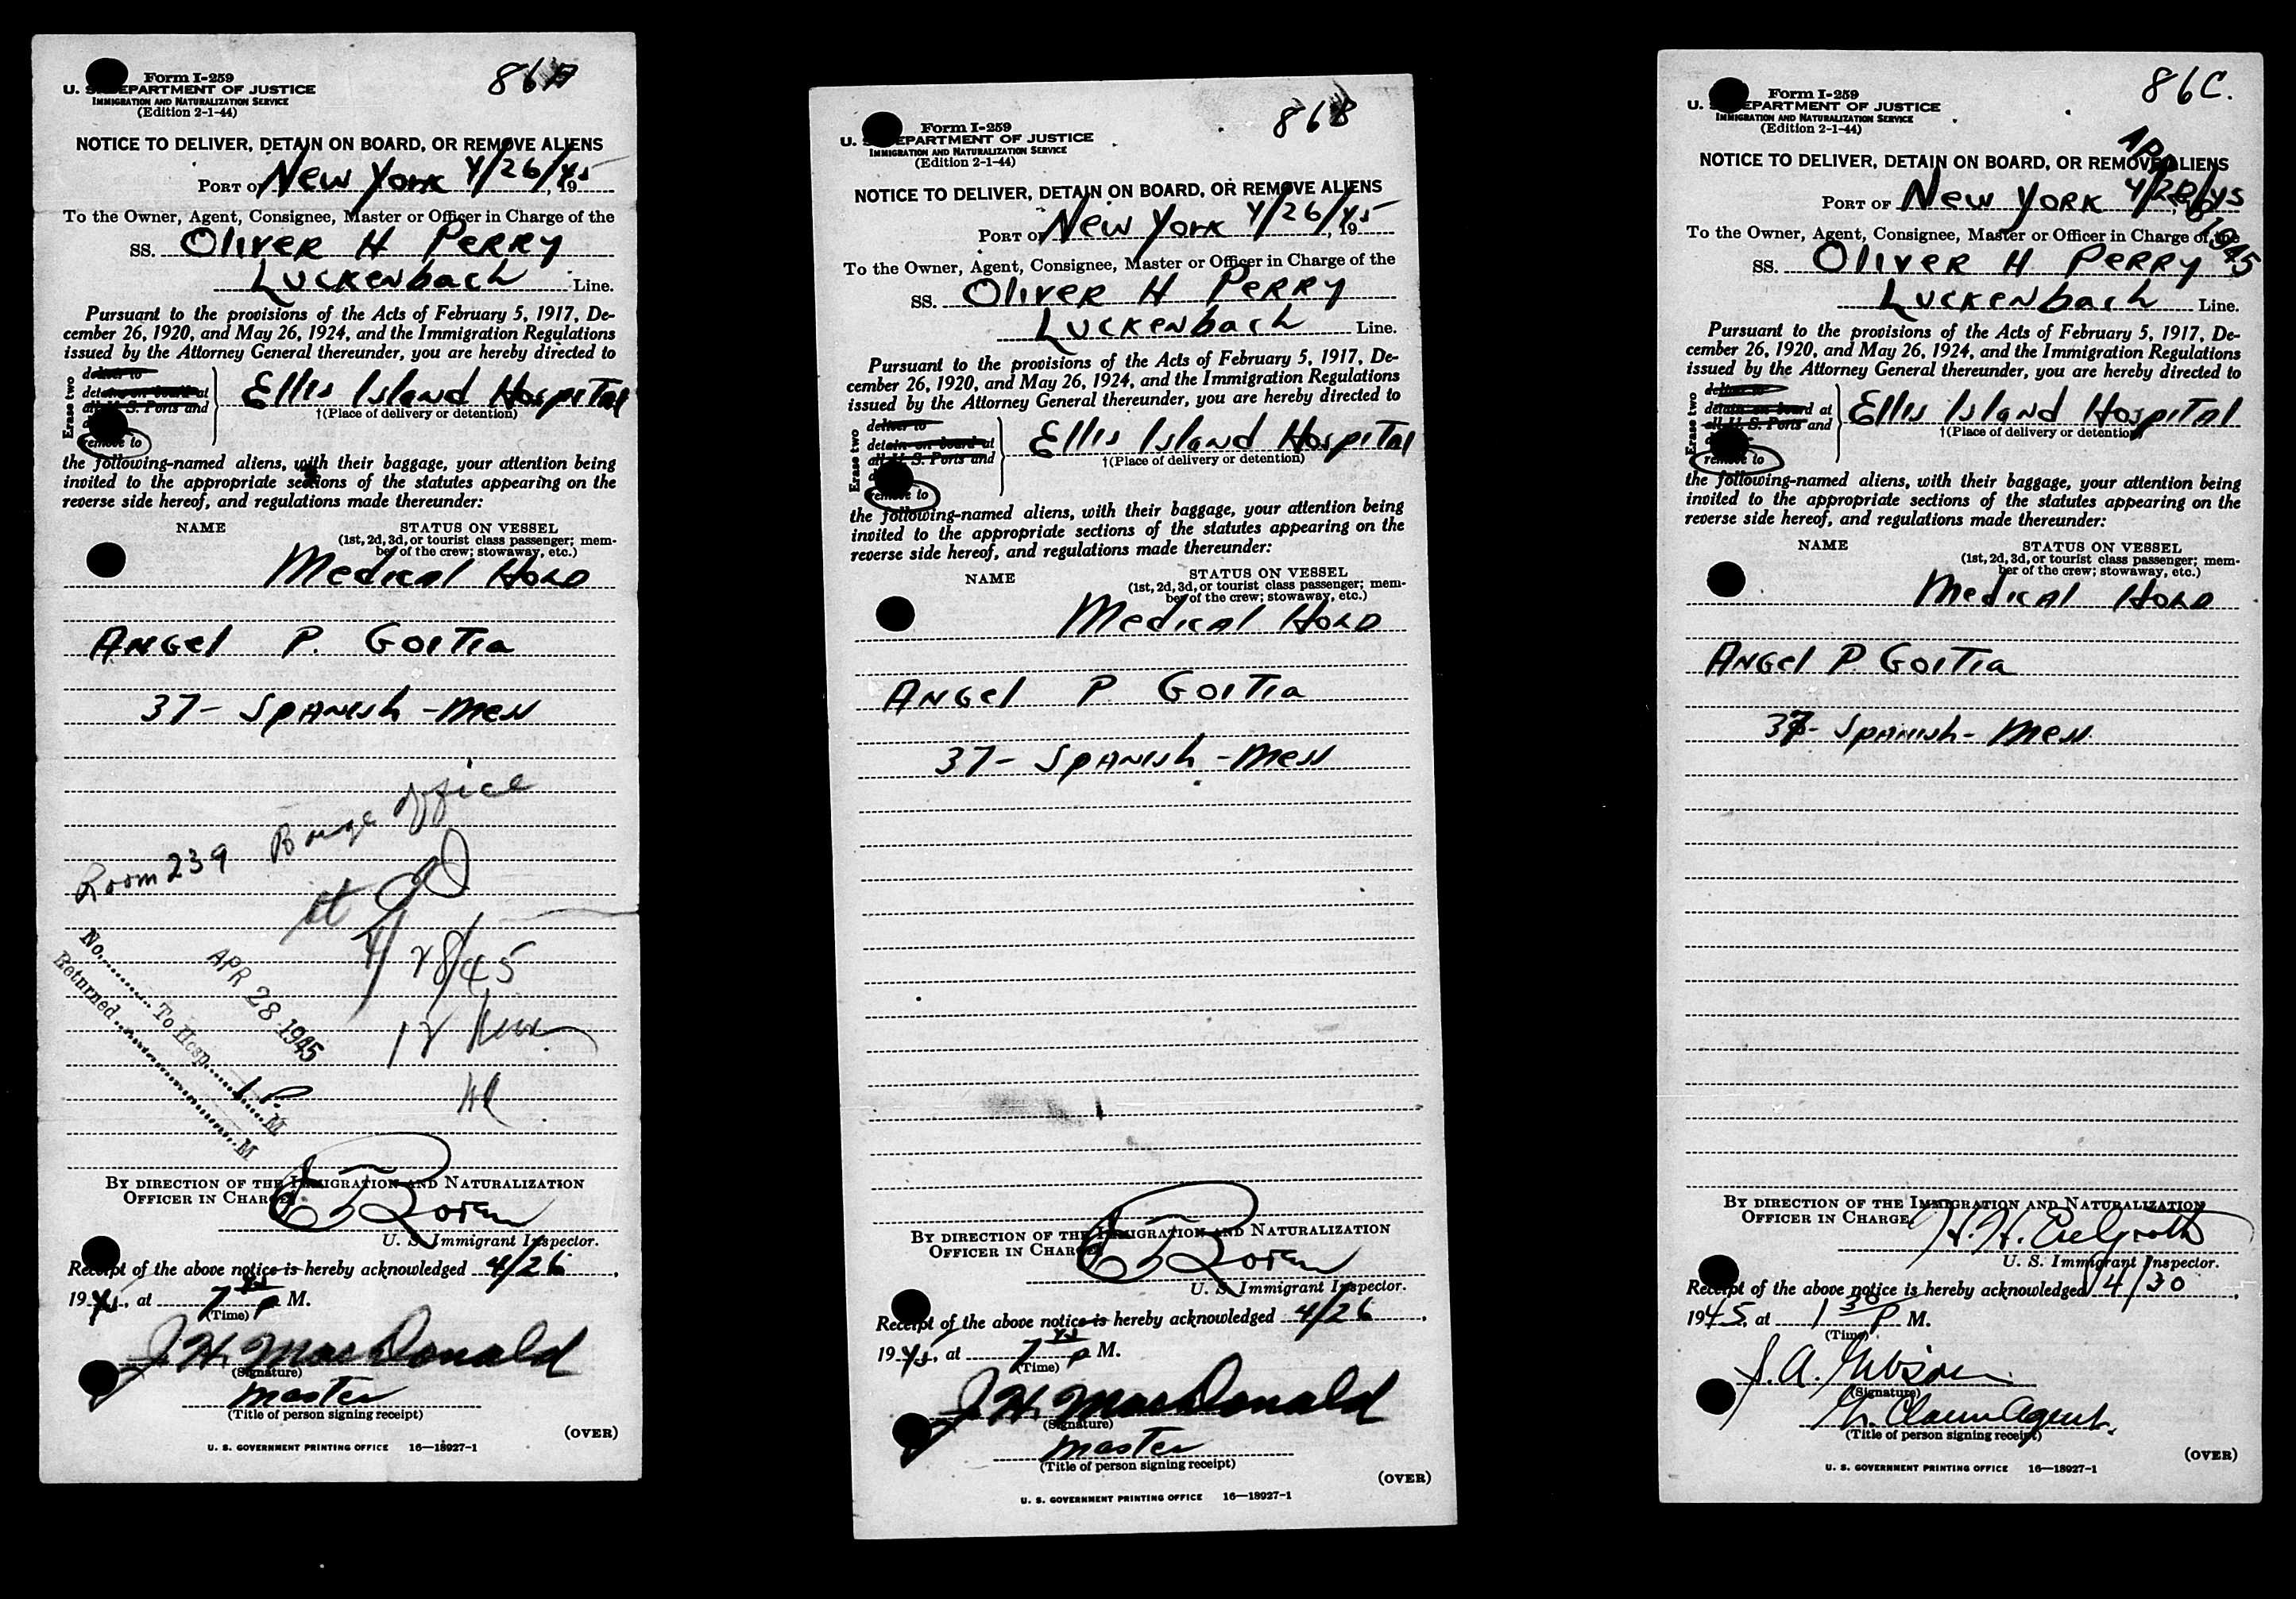 86A
Form I-259
U. S. DEPARTMENT OF JUSTICE
IMMIGRATION AND NATURALIZATION SERVICE
(Edition 2-1-44)
NOTICE TO DELIVER, DETAIN ON BOARD, OR REMOVE ALIENS
PORT OF New York 4/26/45, 19
To the Owner, Agent, Consignee, Master or Officer in Charge of the
SS. Oliver H Perry
Luckenbach Line.
Pursuant to the provisions of the Acts of February 5, 1917, De-
cember 26, 1920, and May 26, 1924, and the Immigration Regulations
issued by the Attorney General thereunder, you are hereby directed to
Erase two
deliver to
detain on board at
all U. S. Ports and
remove to
Ellis Island Hospital
†(Place of delivery or detention)
the following-named aliens, with their baggage, your attention being
invited to the appropriate sections of the statutes appearing on the
reverse side hereof, and regulations made thereunder:
NAME STATUS ON VESSEL
(1st, 2d, 3d, or tourist class passenger; mem-
ber of the crew; stowaway, etc.)
Medical Hold
Angel P. Goitia
37- Spanish - Mess
Room 239 Barge Office
4/28/45
No. To Hosp. 1 P. M
APR 28 1945
Returned M
BY DIRECTION OF THE IMMIGRATION AND NATURALIZATION
OFFICER IN CHARGE
U. S. Immigrant Inspector.
Receipt of the above notice is hereby acknowledged 4/26,
1945, at 7 P M.
(Time)
J. H. MacDonald
(Signature)
master
(Title of person signing receipt)
(OVER)
U. S. GOVERNMENT PRINTING OFFICE 16—18927-1
86B
Form I-259
U. S. DEPARTMENT OF JUSTICE
IMMIGRATION AND NATURALIZATION SERVICE
(Edition 2-1-44)
NOTICE TO DELIVER, DETAIN ON BOARD, OR REMOVE ALIENS
PORT OF New York 4/26/45, 19
To the Owner, Agent, Consignee, Master or Officer in Charge of the
SS. Oliver H Perry
Luckenbach Line.
Pursuant to the provisions of the Acts of February 5, 1917, De-
cember 26, 1920, and May 26, 1924, and the Immigration Regulations
issued by the Attorney General thereunder, you are hereby directed to
Erase two
deliver to
detain on board at
all U. S. Ports and
remove to
Ellis Island Hospital
†(Place of delivery or detention)
the following-named aliens, with their baggage, your attention being
invited to the appropriate sections of the statutes appearing on the
reverse side hereof, and regulations made thereunder:
NAME STATUS ON VESSEL
(1st, 2d, 3d, or tourist class passenger; mem-
ber of the crew; stowaway, etc.)
Medical Hold
Angel P. Goitia
37- Spanish - Mess
BY DIRECTION OF THE IMMIGRATION AND NATURALIZATION
OFFICER IN CHARGE
U. S. Immigrant Inspector.
Receipt of the above notice is hereby acknowledged 4/26,
1945, at 7 P M.
(Time)
J. H. MacDonald
(Signature)
master
(Title of person signing receipt)
(OVER)
U. S. GOVERNMENT PRINTING OFFICE 16—18927-1
86C.
Form I-259
U. S. DEPARTMENT OF JUSTICE
IMMIGRATION AND NATURALIZATION SERVICE
(Edition 2-1-44)
NOTICE TO DELIVER, DETAIN ON BOARD, OR REMOVE ALIENS
PORT OF New York 4/28/45
To the Owner, Agent, Consignee, Master or Officer in Charge of the
SS. Oliver H Perry
Luckenbach Line.
Pursuant to the provisions of the Acts of February 5, 1917, De-
cember 26, 1920, and May 26, 1924, and the Immigration Regulations
issued by the Attorney General thereunder, you are hereby directed to
Erase two
deliver to
detain on board at
all U. S. Ports and
remove to
Ellis Island Hospital
†(Place of delivery or detention)
the following-named aliens, with their baggage, your attention being
invited to the appropriate sections of the statutes appearing on the
reverse side hereof, and regulations made thereunder:
NAME STATUS ON VESSEL
(1st, 2d, 3d, or tourist class passenger; mem-
ber of the crew; stowaway, etc.)
Medical Hold
Angel P. Goitia
37- Spanish - Mess
BY DIRECTION OF THE IMMIGRATION AND NATURALIZATION
OFFICER IN CHARGE
U. S. Immigrant Inspector.
Receipt of the above notice is hereby acknowledged 4/30,
1945, at 1 30 P M.
(Time)
(Signature)
Claim Agent.
(Title of person signing receipt)
(OVER)
U. S. GOVERNMENT PRINTING OFFICE 16—18927-1